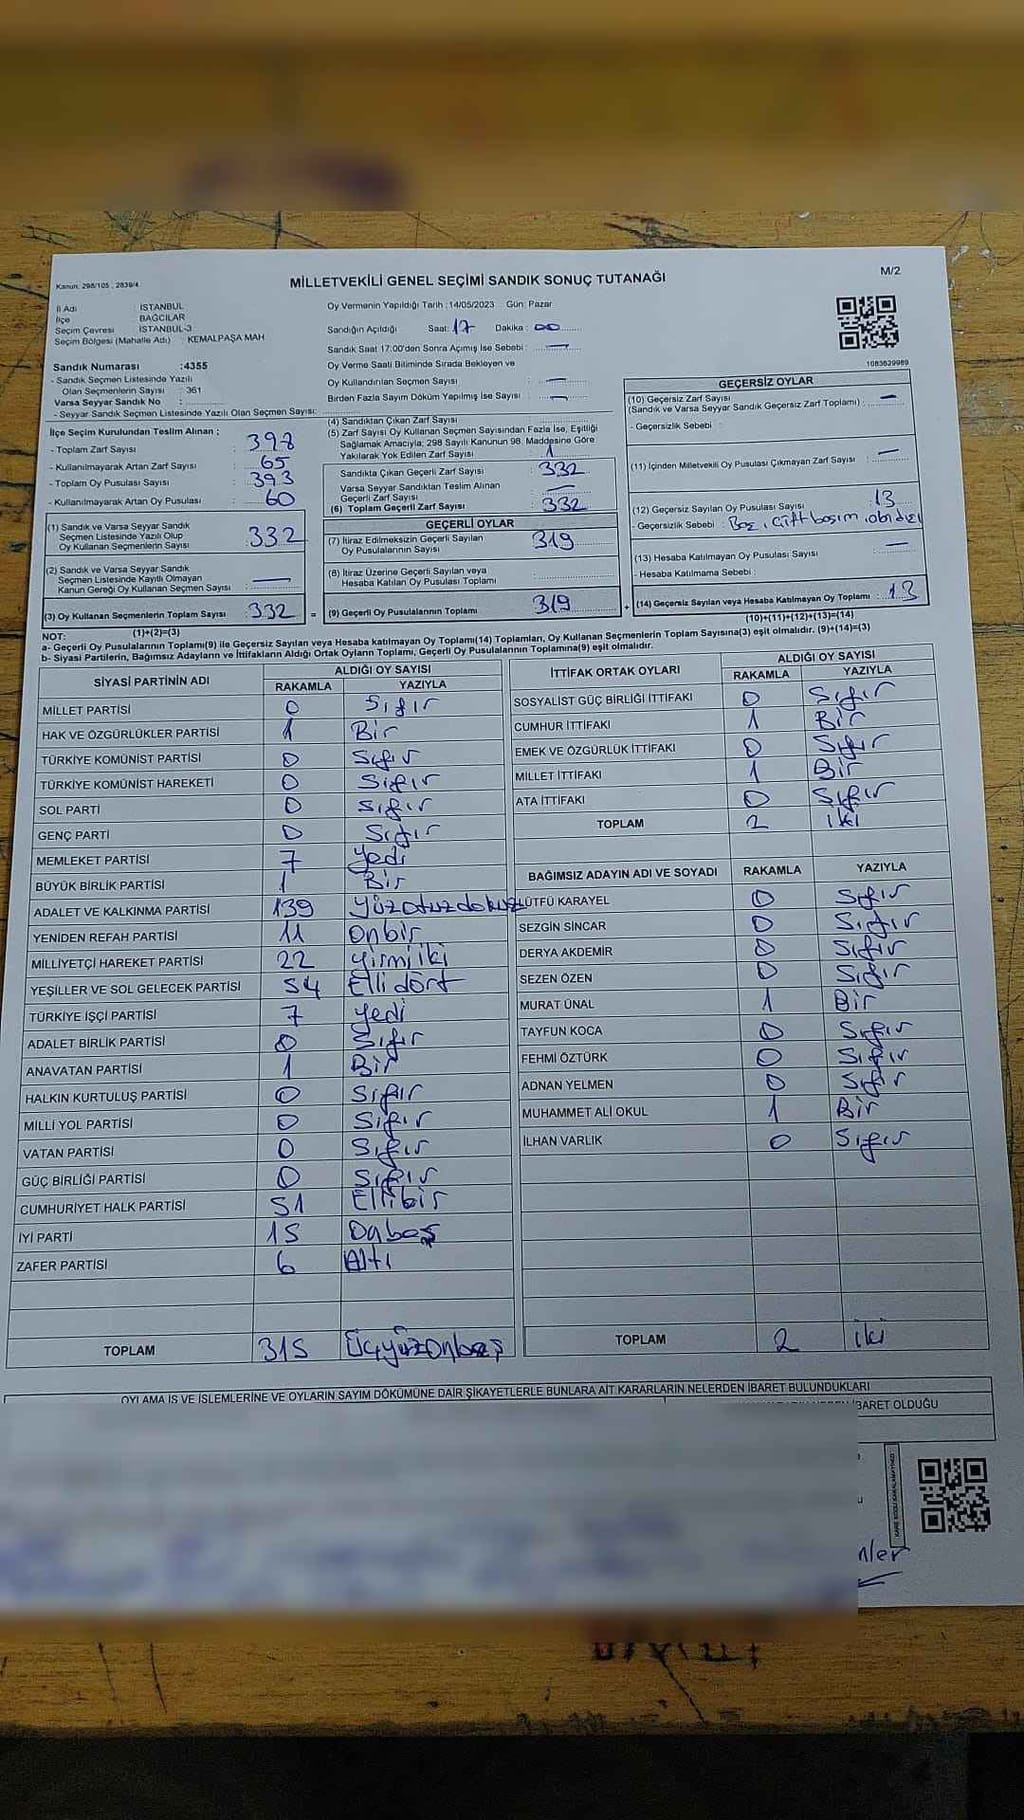 Kanun: 298/105 , 2839/4
MİLLETVEKİLİ GENEL SEÇİMİ SANDIK SONUÇ TUTANAĞI
M/2
İl Adı İSTANBUL
İlçe BAĞCILAR
Seçim Çevresi İSTANBUL-3
Seçim Bölgesi (Mahalle Adı) : KEMALPAŞA MAH
Sandık Numarası :4355
- Sandık Seçmen Listesinde Yazılı
Olan Seçmenlerin Sayısı : 361
Varsa Seyyar Sandık No :
- Seyyar Sandık Seçmen Listesinde Yazılı Olan Seçmen Sayısı:
Oy Vermenin Yapıldığı Tarih :14/05/2023 Gün: Pazar
Sandığın Açıldığı Saat: 17 Dakika : 00
Sandık Saat 17:00'den Sonra Açımış İse Sebebi : —
Oy Verme Saati Bitiminde Sırada Bekleyen ve
Oy Kullandırılan Seçmen Sayısı : —
Birden Fazla Sayım Döküm Yapılmış İse Sayısı : —
1083629989
İlçe Seçim Kurulundan Teslim Alınan ;
- Toplam Zarf Sayısı : 397
- Kullanılmayarak Artan Zarf Sayısı : 65
- Toplam Oy Pusulası Sayısı : 393
- Kullanılmayarak Artan Oy Pusulası : 60
(1) Sandık ve Varsa Seyyar Sandık
Seçmen Listesinde Yazılı Olup
Oy Kullanan Seçmenlerin Sayısı : 332
(2) Sandık ve Varsa Seyyar Sandık
Seçmen Listesinde Kayıtlı Olmayan
Kanun Gereği Oy Kullanan Seçmen Sayısı : —
(3) Oy Kullanan Seçmenlerin Toplam Sayısı : 332 =
(1)+(2)=(3)
(4) Sandıktan Çıkan Zarf Sayısı :
(5) Zarf Sayısı Oy Kullanan Seçmen Sayısından Fazla İse, Eşitliği
Sağlamak Amacıyla; 298 Sayılı Kanunun 98. Maddesine Göre
Yakılarak Yok Edilen Zarf Sayısı : 1
Sandıkta Çıkan Geçerli Zarf Sayısı : 332
Varsa Seyyar Sandıktan Teslim Alınan
Geçerli Zarf Sayısı : —
(6) Toplam Geçerli Zarf Sayısı : 332
GEÇERLİ OYLAR
(7) İtiraz Edilmeksizin Geçerli Sayılan
Oy Pusulalarının Sayısı : 319
(8) İtiraz Üzerine Geçerli Sayılan veya
Hesaba Katılan Oy Pusulası Toplamı :
(9) Geçerli Oy Pusulalarının Toplamı : 319 +
GEÇERSİZ OYLAR
(10) Geçersiz Zarf Sayısı
(Sandık ve Varsa Seyyar Sandık Geçersiz Zarf Toplamı) : —
- Geçersizlik Sebebi :
(11) İçinden Milletvekili Oy Pusulası Çıkmayan Zarf Sayısı : —
(12) Geçersiz Sayılan Oy Pusulası Sayısı : 13
- Geçersizlik Sebebi : Boş, çift basım,
(13) Hesaba Katılmayan Oy Pusulası Sayısı : —
- Hesaba Katılmama Sebebi :
(14) Geçersiz Sayılan veya Hesaba Katılmayan Oy Toplamı : 13
(10)+(11)+(12)+(13)=(14)
NOT:
a- Geçerli Oy Pusulalarının Toplamı(9) ile Geçersiz Sayılan veya Hesaba katılmayan Oy Toplamı(14) Toplamları, Oy Kullanan Seçmenlerin Toplam Sayısına(3) eşit olmalıdır. (9)+(14)=(3)
b- Siyasi Partilerin, Bağımsız Adayların ve İttifakların Aldığı Ortak Oyların Toplamı, Geçerli Oy Pusulalarının Toplamına(9) eşit olmalıdır.
SİYASİ PARTİNİN ADI ALDIĞI OY SAYISI
RAKAMLA YAZIYLA
MİLLET PARTİSİ 0 Sıfır
HAK VE ÖZGÜRLÜKLER PARTİSİ 1 Bir
TÜRKİYE KOMÜNİST PARTİSİ 0 Sıfır
TÜRKİYE KOMÜNİST HAREKETİ 0 Sıfır
SOL PARTİ 0 Sıfır
GENÇ PARTİ 0 Sıfır
MEMLEKET PARTİSİ 7 yedi
BÜYÜK BİRLİK PARTİSİ 1 Bir
ADALET VE KALKINMA PARTİSİ 139 yüzotuzdokuz
YENİDEN REFAH PARTİSİ 11 Onbir
MİLLİYETÇİ HAREKET PARTİSİ 22 yirmiiki
YEŞİLLER VE SOL GELECEK PARTİSİ 54 Ellidört
TÜRKİYE İŞÇİ PARTİSİ 7 yedi
ADALET BİRLİK PARTİSİ 0 Sıfır
ANAVATAN PARTİSİ 1 Bir
HALKIN KURTULUŞ PARTİSİ 0 Sıfır
MİLLİ YOL PARTİSİ 0 Sıfır
VATAN PARTİSİ 0 Sıfır
GÜÇ BİRLİĞİ PARTİSİ 0 Sıfır
CUMHURİYET HALK PARTİSİ 51 Ellibir
İYİ PARTİ 15 Onbeş
ZAFER PARTİSİ 6 Altı
TOPLAM 315 Üçyüzonbeş
İTTİFAK ORTAK OYLARI ALDIĞI OY SAYISI
RAKAMLA YAZIYLA
SOSYALİST GÜÇ BİRLİĞİ İTTİFAKI 0 Sıfır
CUMHUR İTTİFAKI 1 Bir
EMEK VE ÖZGÜRLÜK İTTİFAKI 0 Sıfır
MİLLET İTTİFAKI 1 Bir
ATA İTTİFAKI 0 Sıfır
TOPLAM 2 iki
BAĞIMSIZ ADAYIN ADI VE SOYADI RAKAMLA YAZIYLA
LÜTFÜ KARAYEL 0 Sıfır
SEZGİN SİNCAR 0 Sıfır
DERYA AKDEMİR 0 Sıfır
SEZEN ÖZEN 0 Sıfır
MURAT ÜNAL 1 Bir
TAYFUN KOCA 0 Sıfır
FEHMİ ÖZTÜRK 0 Sıfır
ADNAN YELMEN 0 Sıfır
MUHAMMET ALİ OKUL 1 Bir
İLHAN VARLIK 0 Sıfır
TOPLAM 2 iki
OYLAMA İŞ VE İŞLEMLERİNE VE OYLARIN SAYIM DÖKÜMÜNE DAİR ŞİKAYETLERLE BUNLARA AİT KARARLARIN NELERDEN İBARET BULUNDUKLARI
İBARET OLDUĞU